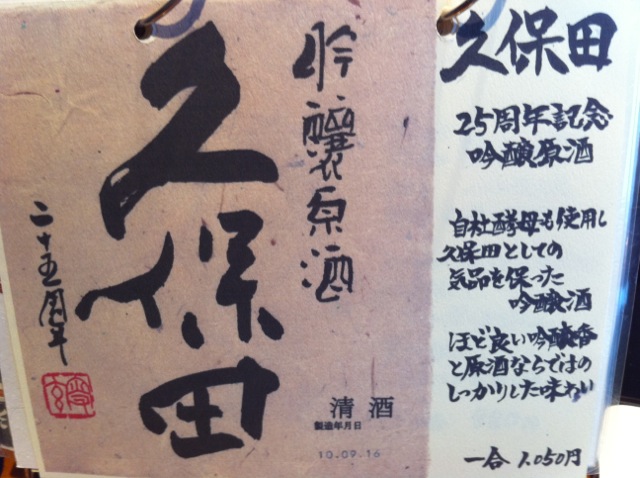 久保田
吟醸原酒
二十五周年
清酒
製造年月日
10.09.16
久保田
25周年記念
吟醸原酒
自社酵母も使用し
久保田としての
気品を保った
吟醸酒
ほど良い吟醸香
と原酒ならではの
しっかりした味わい
一合 1,050円